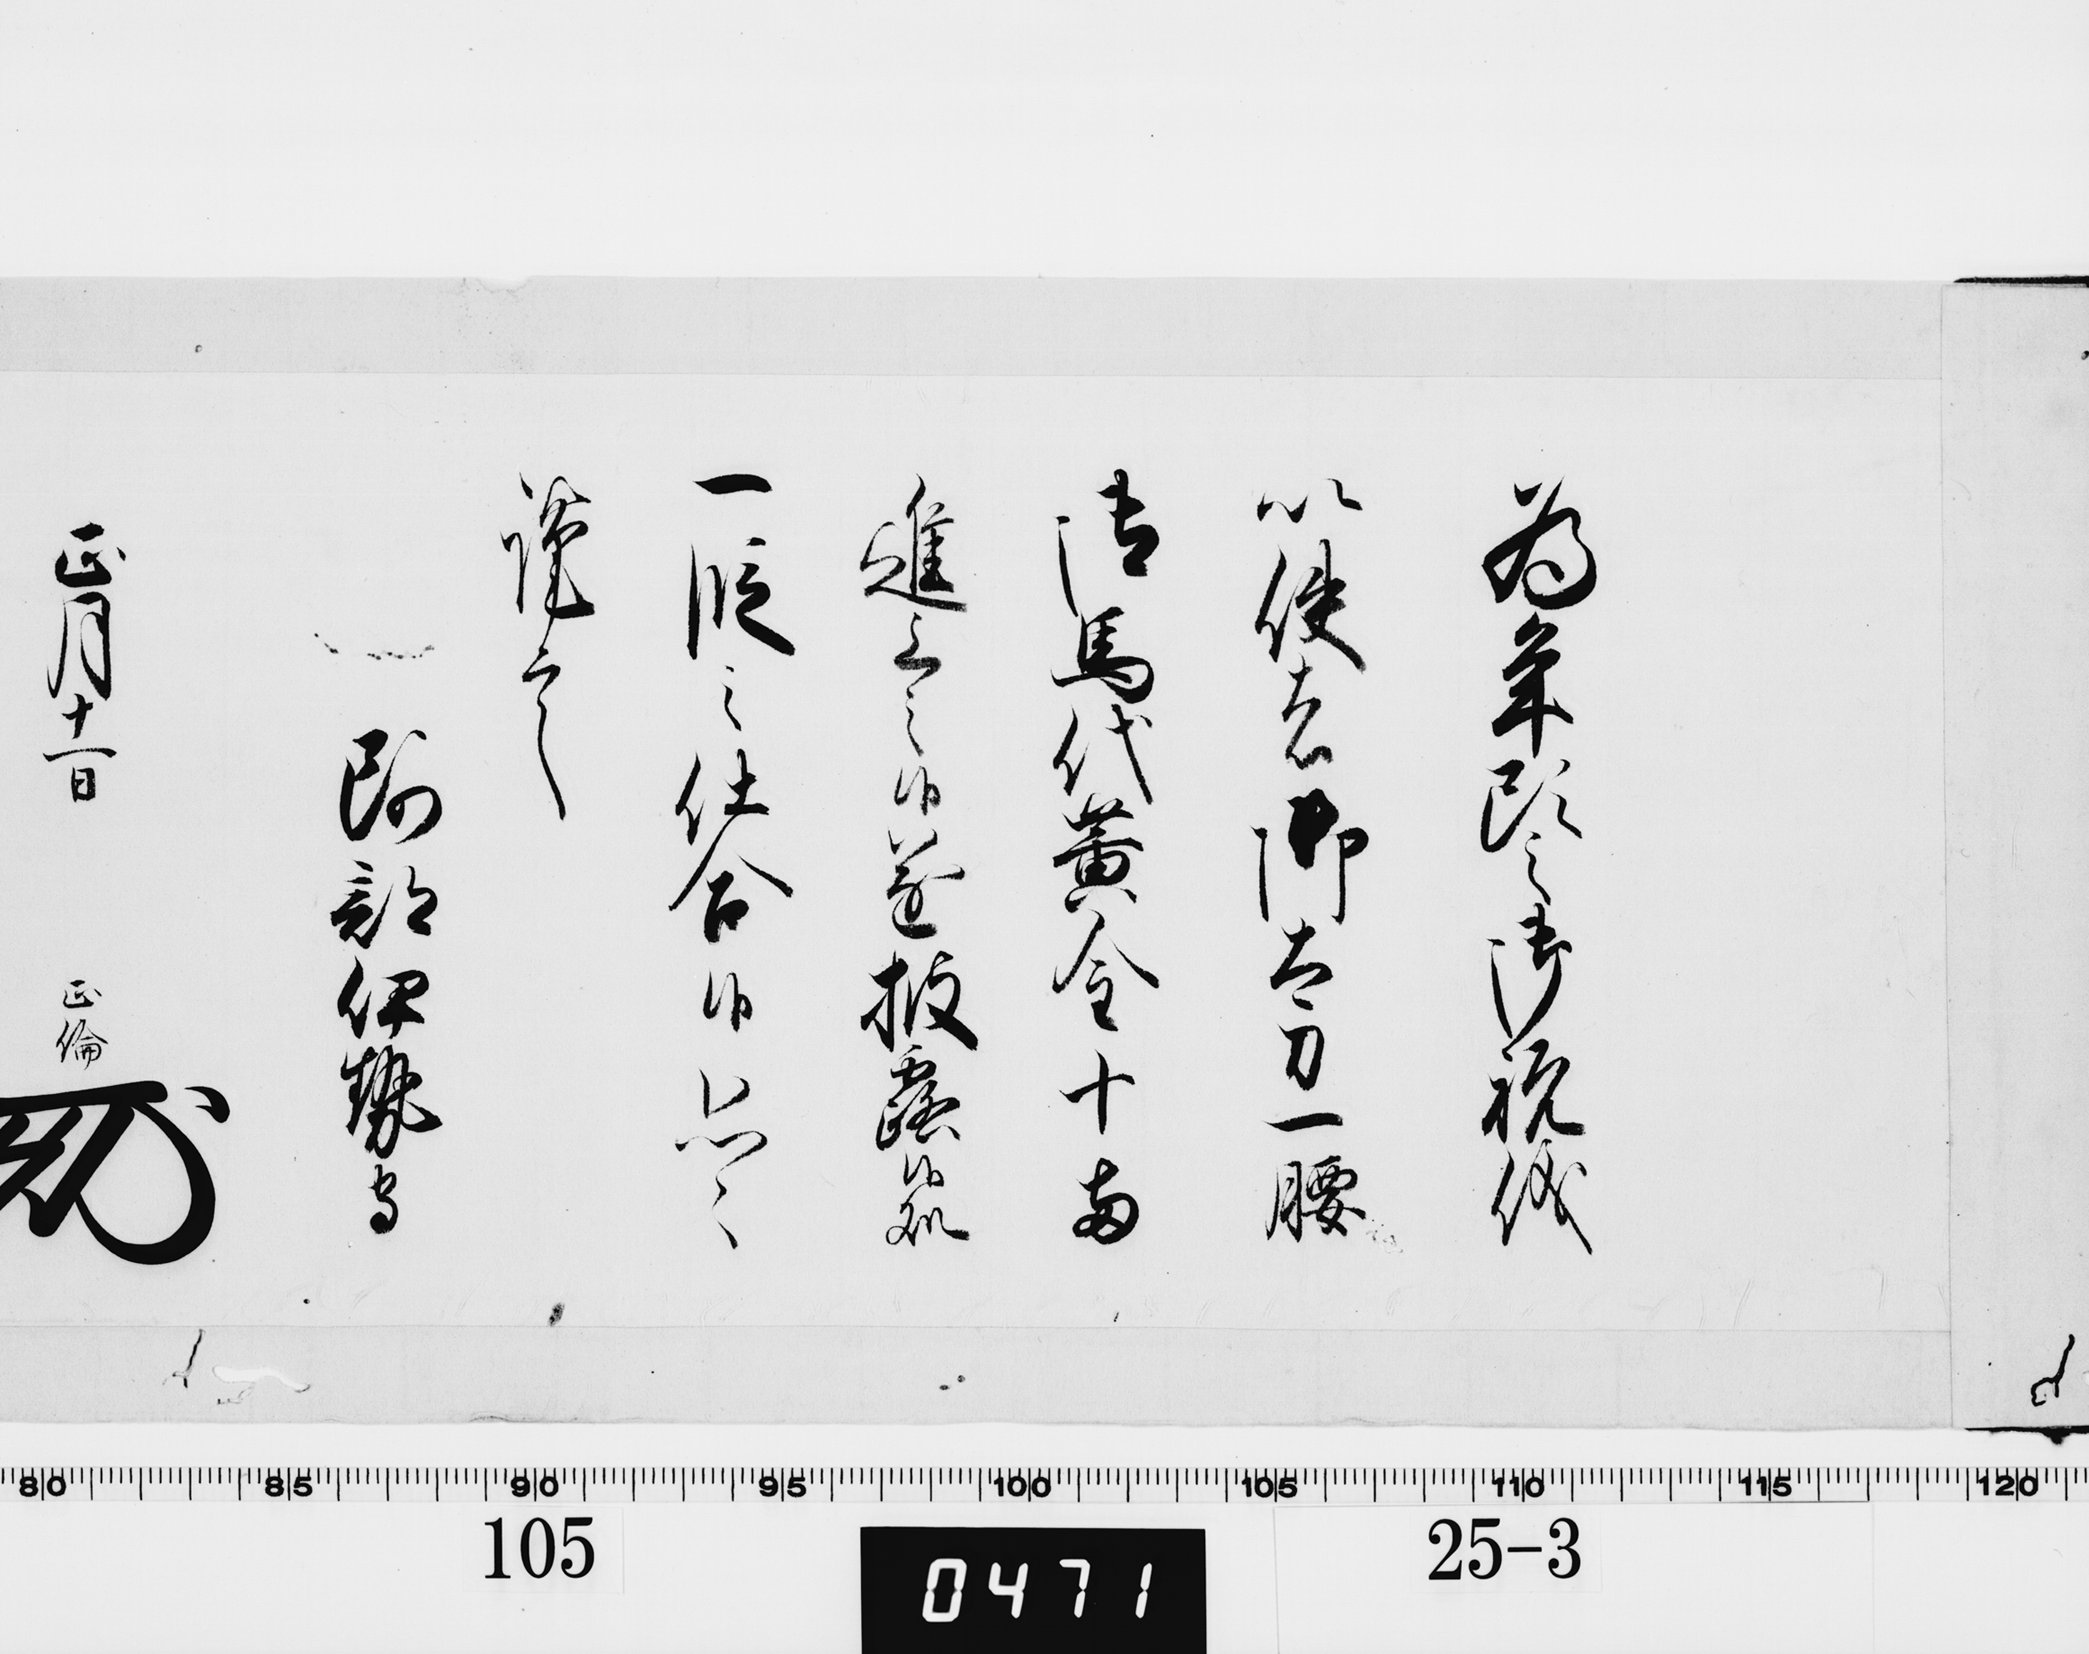 為年頭之御祝儀
以使者御太刀一腰
御馬代黄金十両
進上之候遂披露候処
一段之仕合候恐々
謹言
阿部伊勢守
正月十一日
正倫
80 85 90 95 100 105 110 115 120
105
0471
25-3